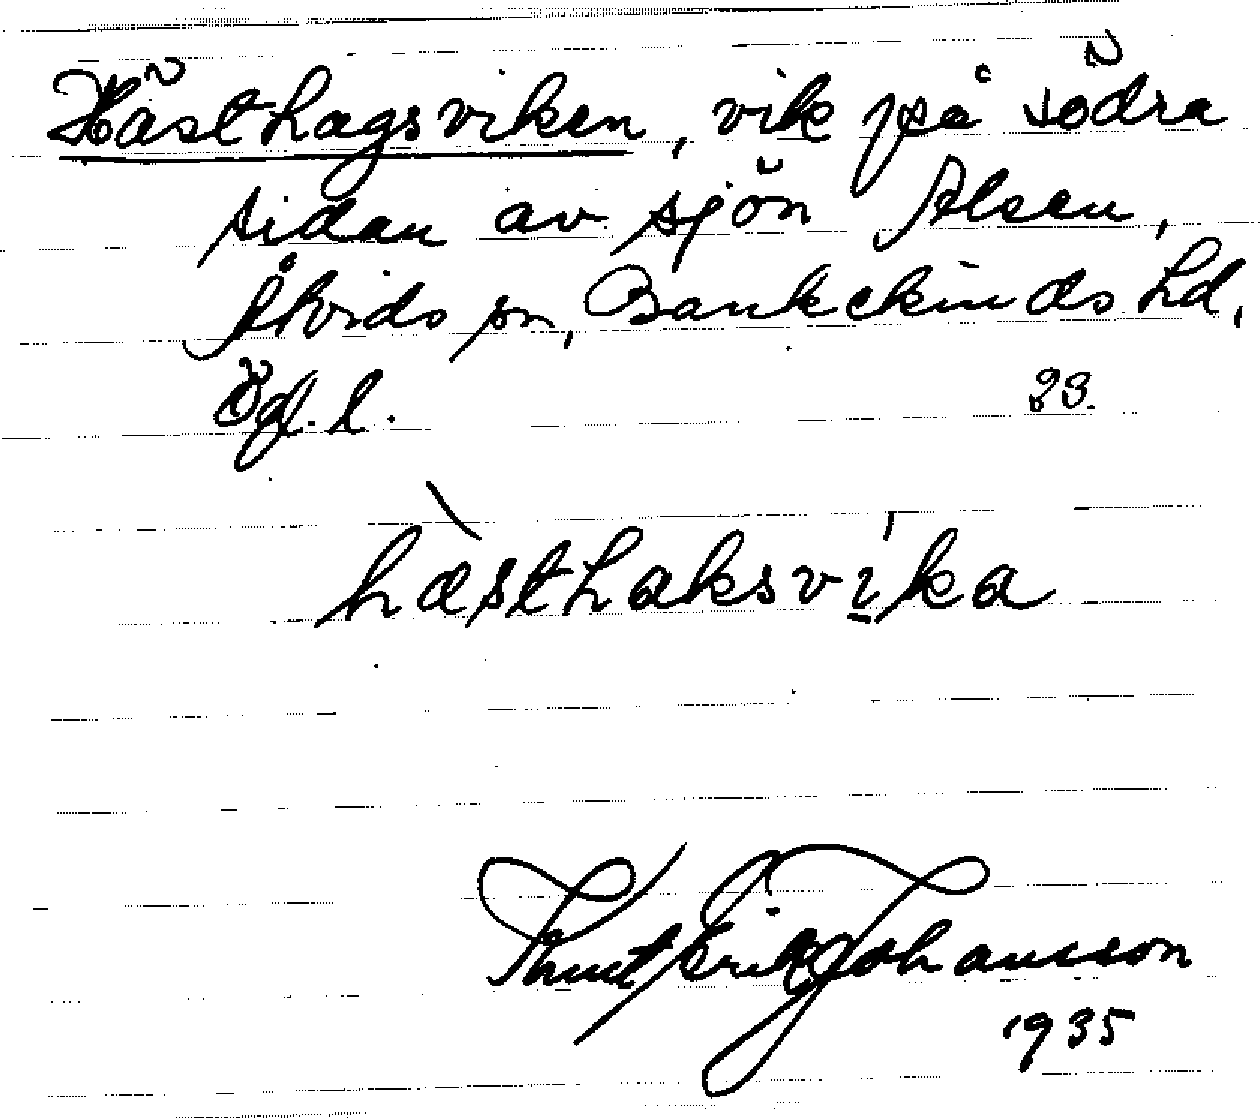 Hästhagsviken, vik på södra
sidan av sjön Alsen,
Åtvids sn, Bankekinds hd,
Ögl. l. 23.
hàsthaksvíka
Knut Erik Johansson
1935